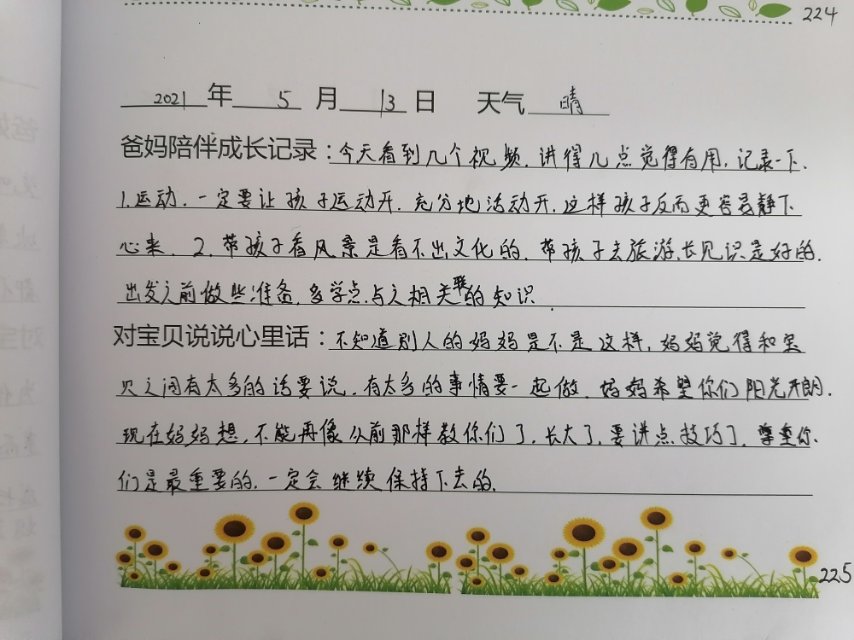 224
2021年 5 月 13 日 天气 晴
爸妈陪伴成长记录：今天看到几个视频,讲得几点觉得有用,记录一下.
1.运动.一定要让孩子运动开.充分地活动开.这样孩子反而更容易静下
心来. 2.带孩子看风景是看不出文化的.带孩子去旅游.长见识是好的.
出发之前做些准备,多学点与之相关联的知识.
对宝贝说说心里话：不知道别人的妈妈是不是这样,妈妈觉得和宝
贝之间有太多的话要说,有太多的事情要一起做.妈妈希望你们阳光开朗.
现在妈妈想,不能再像从前那样教你们了,长大了,要讲点技巧了.尊重你
们是最重要的.一定会继续保持下去的.
225